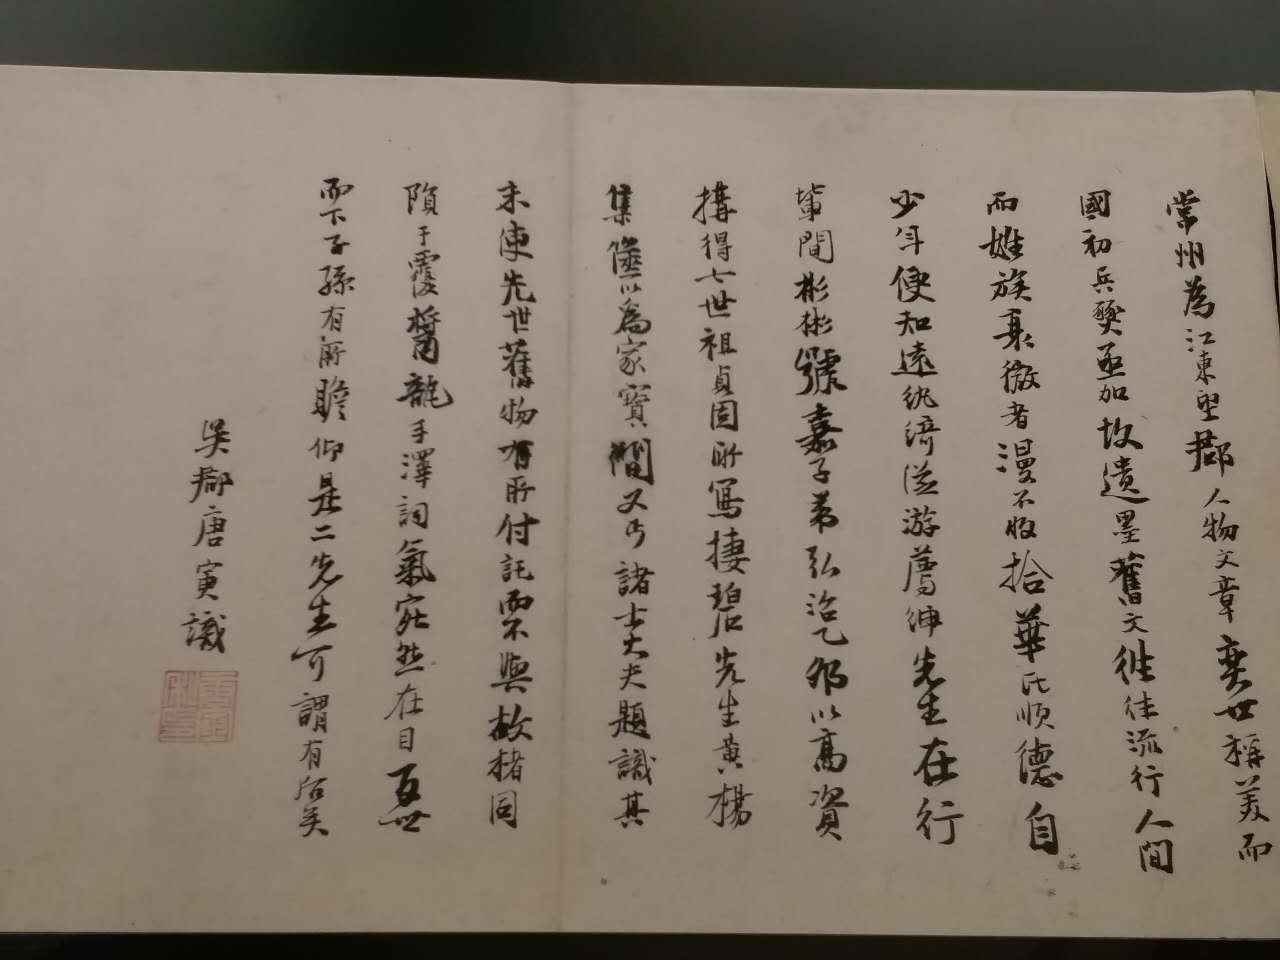 常州為江東望郡人物文章奕世稱美而
國初兵燹亟加故遺墨舊文徃徃流行人間
而姓族衰微者漫不收拾華氏順德自
少年便知遠紈綺滋游薦紳先生在行
輩間彬彬號嘉子弟弘治乙卯以高資
搆得七世祖貞固所寫棲碧先生黃楊
集儘以為家寶間又丐諸士大夫題識其
末使先世舊物有所付託而不與故楮同
隕于覆醬龍手澤詞氣宛然在目百世
而下子孫有所瞻仰是二先生可謂有後矣
吳郡唐寅識